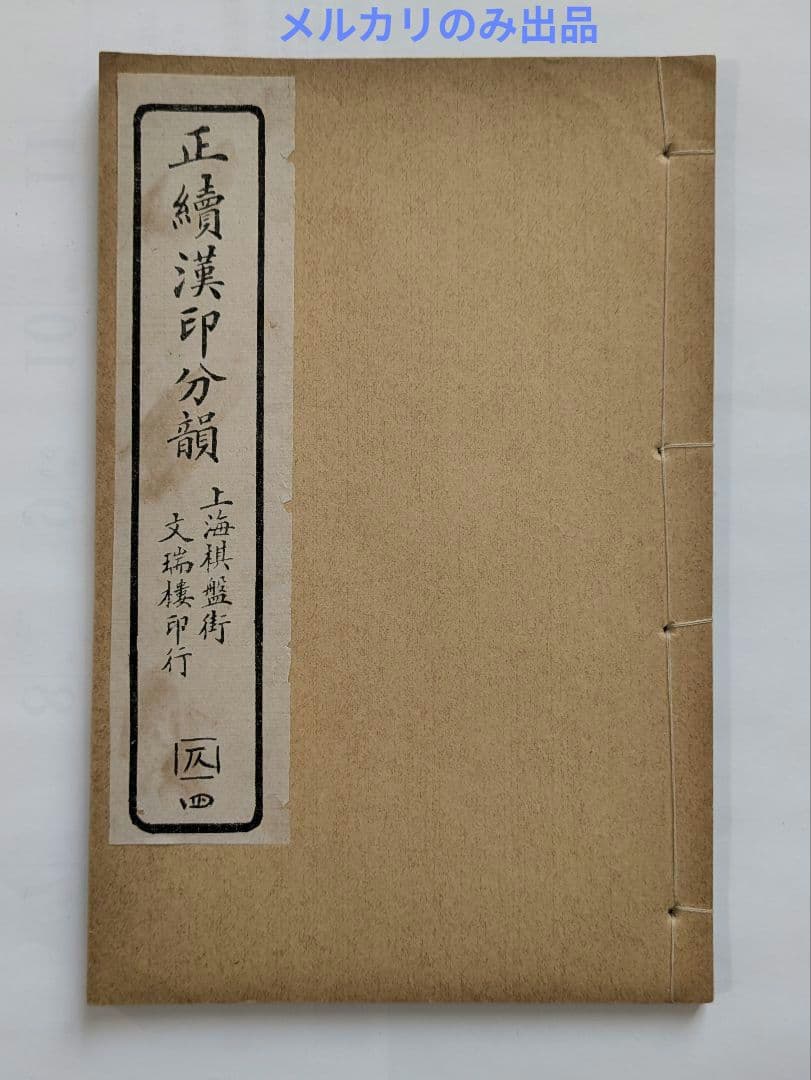 メルカリのみ出品
正續漢印分韻
上海棋盤街
文瑞樓印行
仄
四